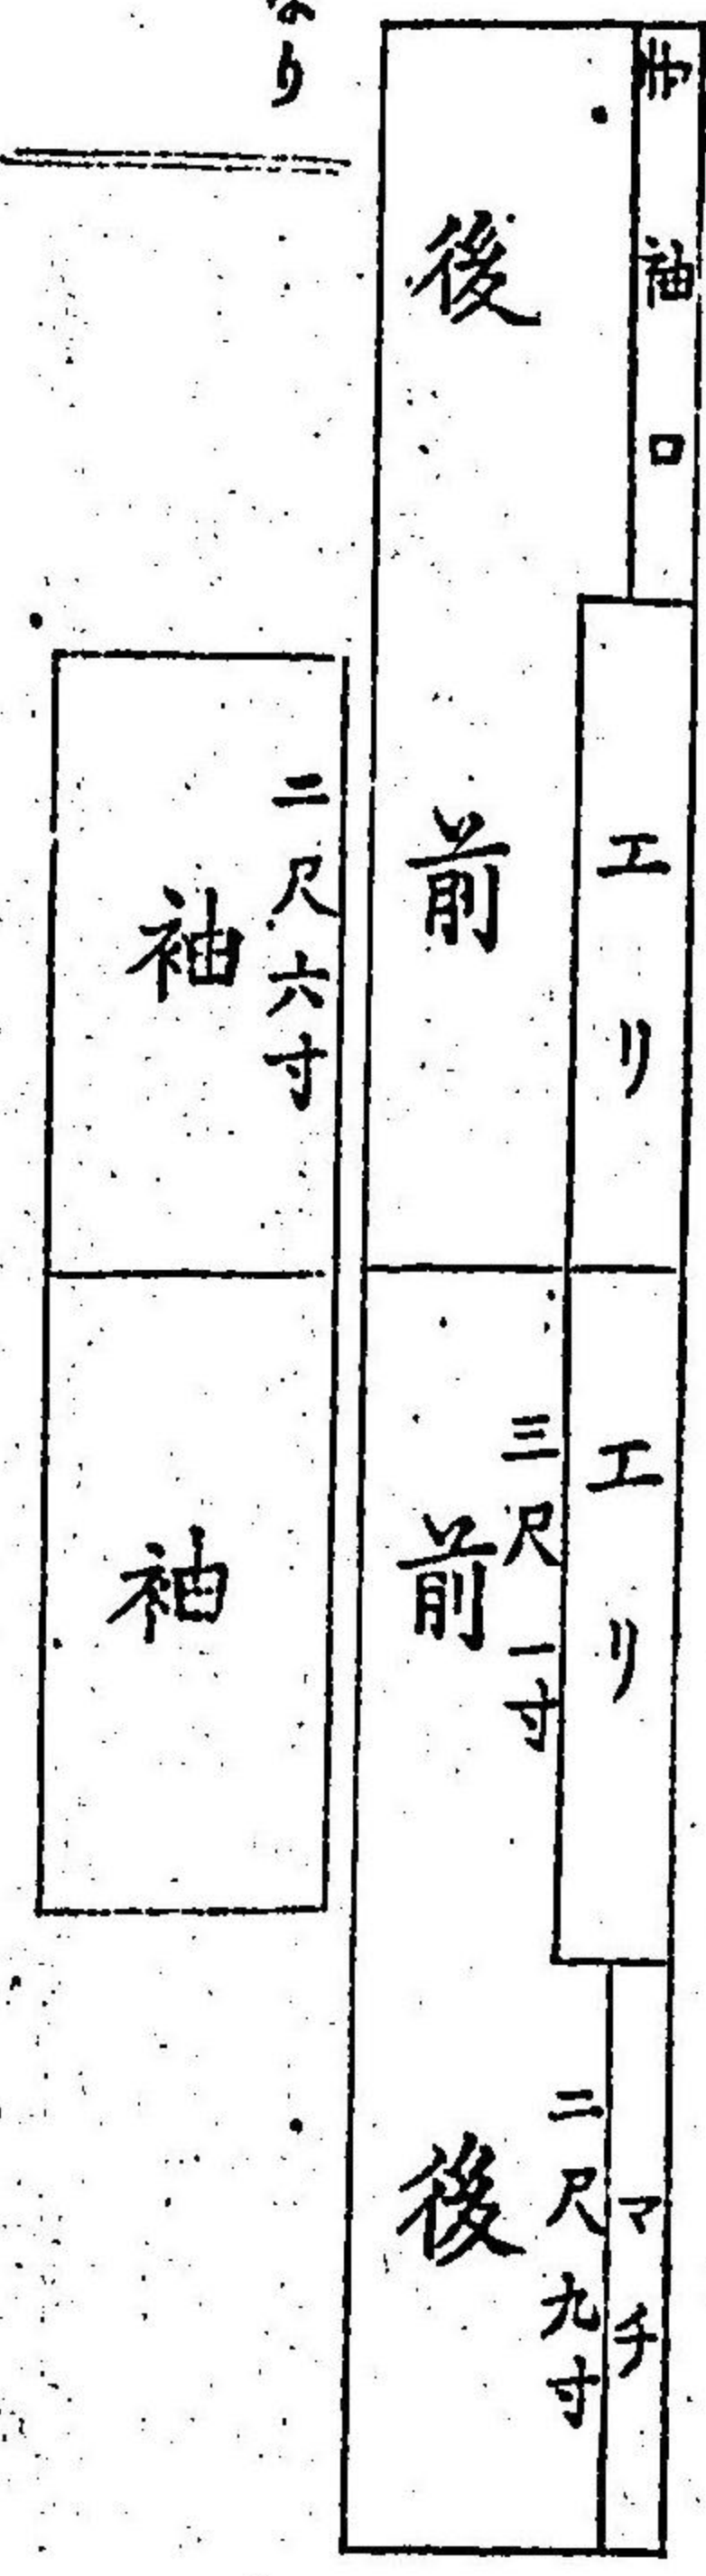 袖口
エリ
エリ
マチ
後
前
三尺一寸
前
二尺九寸
後
二尺六寸
袖
袖
なり